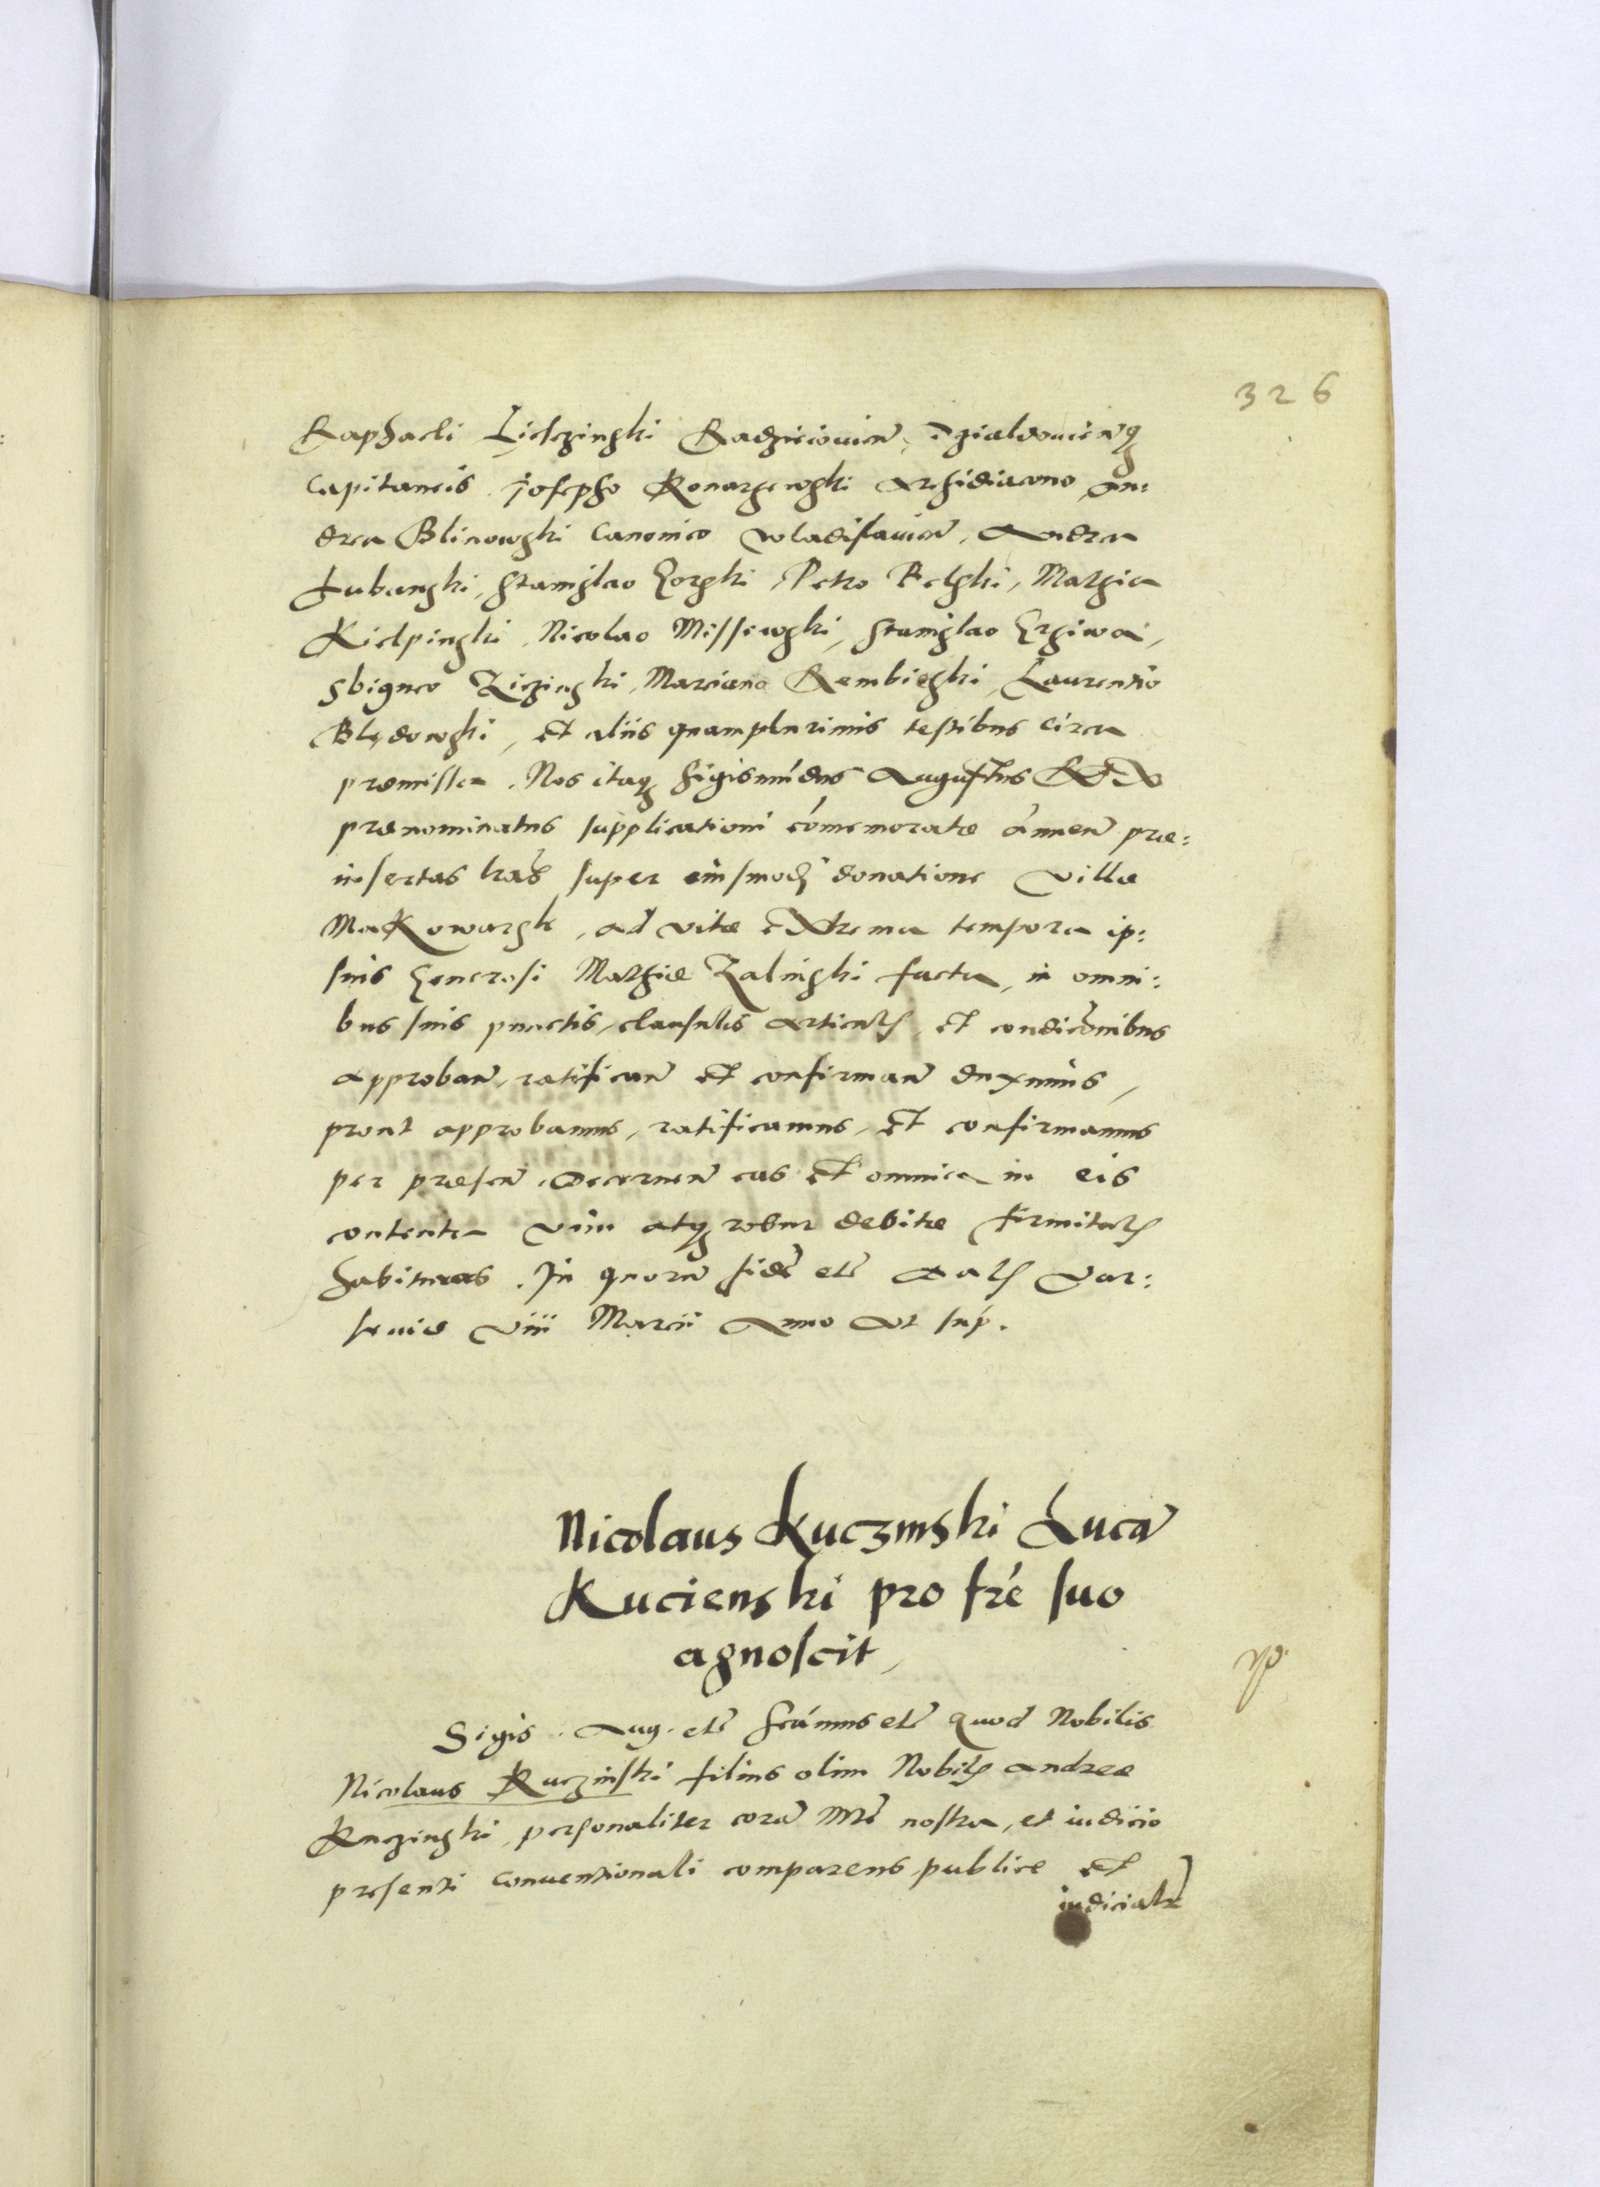 326
Raphaeli Lesczinski Radzieiovien̄, Dzialdovien̄q
Capitaneis, Josepho Konarzewski Archidiacono, An:
drea Blinowski Canonico Wladislavien̄, Andrea
Lubanski, Stanislao Gorski, Petro Belski, Mathia
Kielpinski, Nicolao Missewski, Stanislao Grziwa,
Sbigneo Ziczinski, Marciano Rembieski, Laurentio
Blędowski, et aliis quampluribus testibus circa
premissa. Nos itaq Sigismūdus Augustus REX
prænominatus supplicationi cōmemoratæ ānuen̄ præ:
insertas lrās super eiusmodi donatione villæ
Makowarsk, ad vitæ extrema tempora ip:
sius Generosi Mathiæ Zalinski facta, in omni:
bus suis punctis, clausulis articulis et condicōnibus
approban̄, ratifican̄ et confirman̄ duximus,
prout approbamus, ratificamus, et confirmamus
per præsen̄ Decernen̄ eas et omnia in eis
contenta vim atq robur debitæ firmitatis
habituras. In quorū fidē etc Datis Var:
saviæ VIII Marcii Anno ut sup̄.
Nicolaus Kuczinski Lucā
Kucienski pro frē suo
agnoscit,
Sigis. Aug. etc scām̄us etc Quod Nobilis
Nicolaus Kuczinski filius olim Nobilis Andreæ
Kuczinski, personaliter corā Mte nostra, et iudicio
presenti conventionali comparens publice et
iudicialr